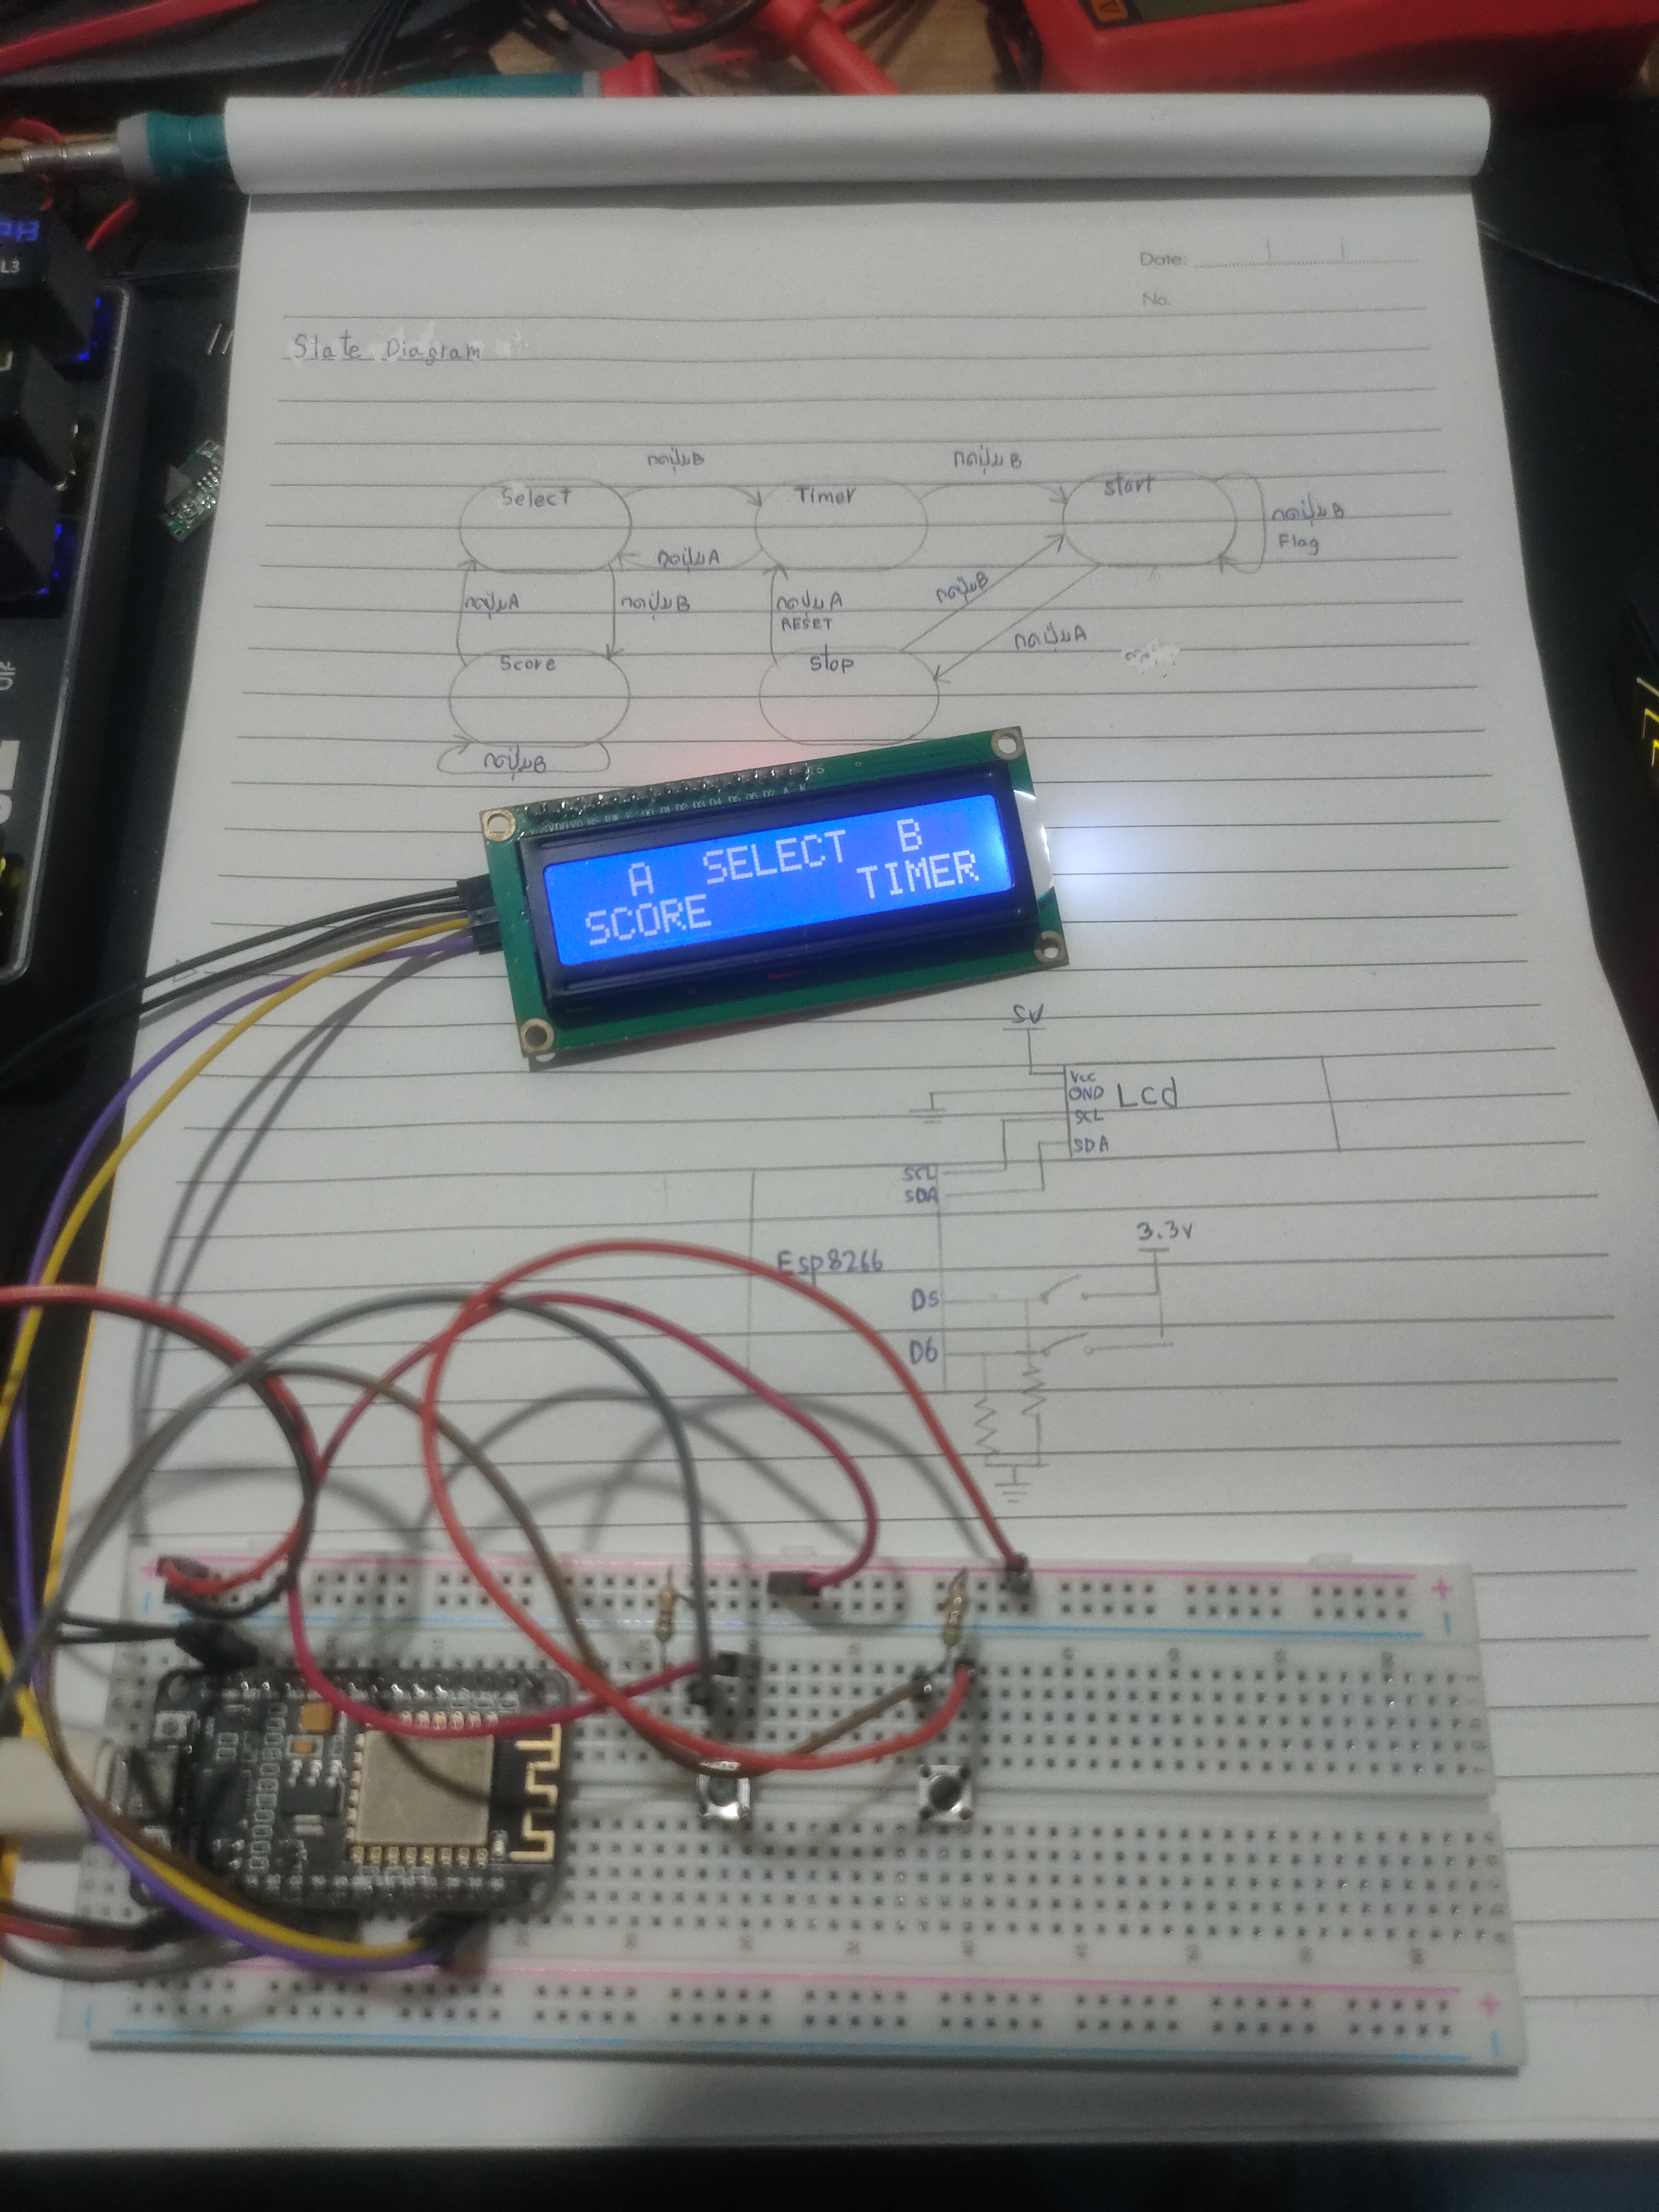 Date:
No.
State Diagram
กดปุ่มB
กดปุ่มB
Select
Timer
start
กดปุ่มB
Flag
กดปุ่มA
กดปุ่มA
กดปุ่มB
กดปุ่มA
RESET
กดปุ่มB
กดปุ่มA
Score
stop
กดปุ่มB
16
A SELECT B
SCORE TIMER
5V
Vcc
GND
Lcd
SCL
SDA
SCL
SDA
3.3V
Esp8266
D5
D6
L3